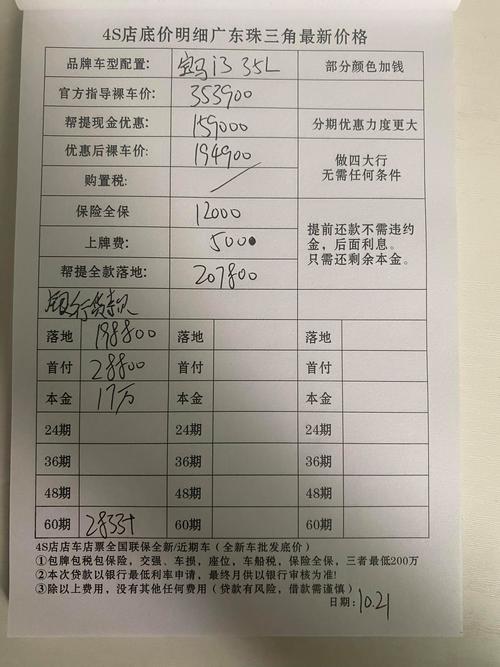 4S店底价明细广东珠三角最新价格
品牌车型配置: 宝马i3 35L 部分颜色加钱
官方指导裸车价: 353900
帮提现金优惠: 159000 分期优惠力度更大
优惠后裸车价: 194900 做四大行
无需任何条件
购置税: /
保险全保 12000 提前还款不需违约
金，后面利息。
只需还剩余本金。
上牌费: 500
帮提全款落地: 207800
银行贷款
落地 198800 落地 落地
首付 28800 首付 首付
本金 17万 本金 本金
24期 24期 24期
36期 36期 36期
48期 48期 48期
60期 2833+ 60期 60期
4S店店车店票全国联保全新/近期车（全新车批发底价）
①包牌包税包保险，交强、车损，座位，车船税，保险全保，三者最低200万
②本次贷款以银行最低利率申请，最终月供以银行审核为准!
③除以上费用，没有其他任何费用（贷款有风险，借款需谨慎）
日期: 10.21